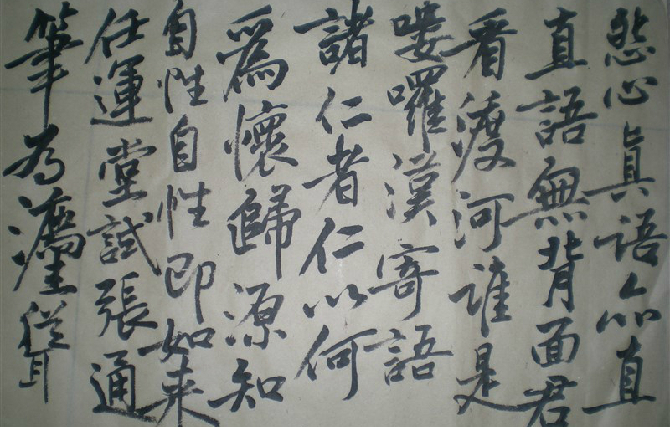 悲心真語亦直
直語無背面君
看渡河誰是
嘍囉漢寄語
諸仁者仁以何
爲懷歸源知
自性自性即如来
任運堂試張通
筆为